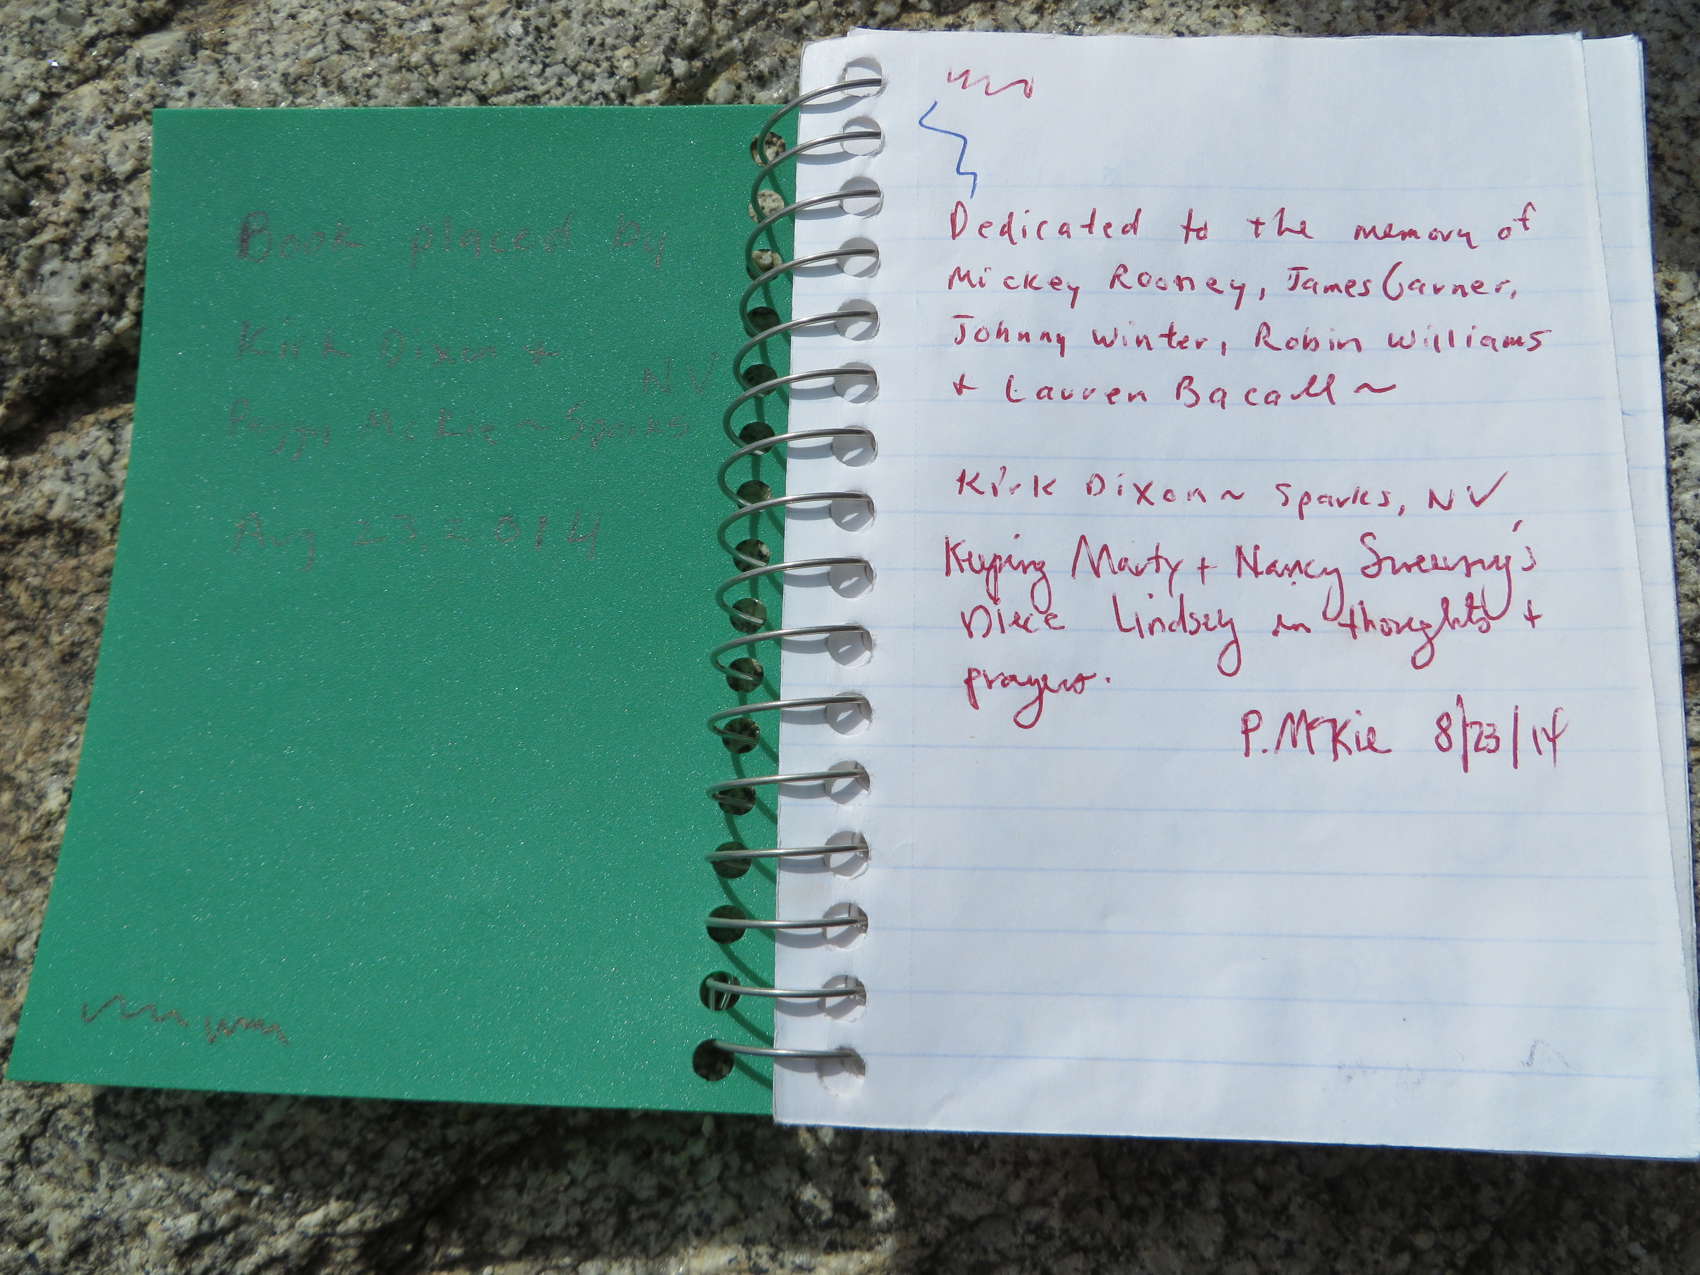 Book placed by
Kirk Dixon +
Peggy McKie ~ Sparks NV
Aug 23, 2014
Dedicated to the memory of
Mickey Rooney, James Garner,
Johnny Winter, Robin Williams
+ Lauren Bacall ~
Kirk Dixon ~ Sparks, NV
Keeping Marty + Nancy Sweeney's
niece Lindsey in thoughts +
prayers.
P. McKie 8/23/14